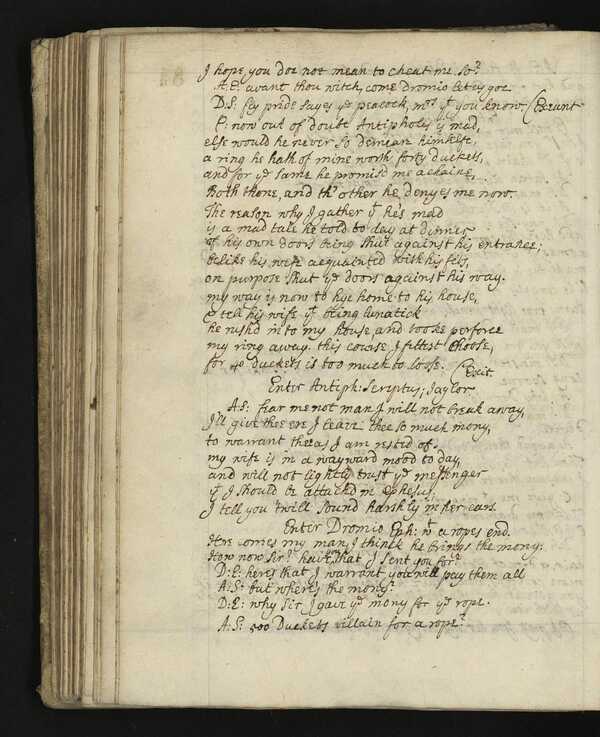 I hope, you doe not mean to cheat me so?
A:E: avant thou witch, come Dromio let vs goe
D:S: fly pride sayes yᵉ peacock, mʳˢ yᵗ you know. Exeunt
C: now out of doubt Antipholis is mad,
else would he never so demean himselfe,
a ring he hath of mine worth forty duckets,
and for yᵉ same he promis'd me a chaine,
Both thone, and th' other he denyes me now.
The reason why I gather yᵗ he's mad
is a mad tale he told to day at dinner
of his own doors being shut against his entrance;
belike his wife acquainted with his fits,
on purpose shut yᵉ doors against his way.
my way is now to hye home to his house,
& tell his wife yᵗ being lunatick
he rush'd in to my house and tooke perforce
my ring away. this course I fittest choose,
for 40 duckets is too much to loose. Exit
Enter Antiph: Jaylor
A:S: fear me not man I will not break away,
I'll give thee ere I leave thee so much mony,
to warrant thee as I am rested of.
my wife is in a wayward mood to day,
and will not lightly trust yᵉ messenger
yᵗ I should be attach'd in Ephesus,
I tell you 'twill sound harshly in her ears.
Enter Dromio Eph: wᵗ a ropes end.
Here comes my man, I think he brings the mony.
How now Sir? have you that I sent you for?
D:E: here's that I warrant you will pay them all
A:S: but where's the mony?
D:E: why Sir I gave yᵉ mony for yᵉ rope.
A:S: 500 Duckets villain for a rope?